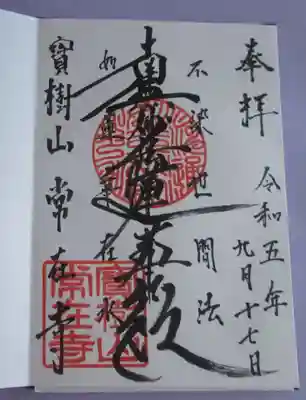 奉拝
令和五年
九月十七日
不染世間法
南無妙法蓮華経
如蓮華在水
寶樹山常在寺
寶樹山
常在寺